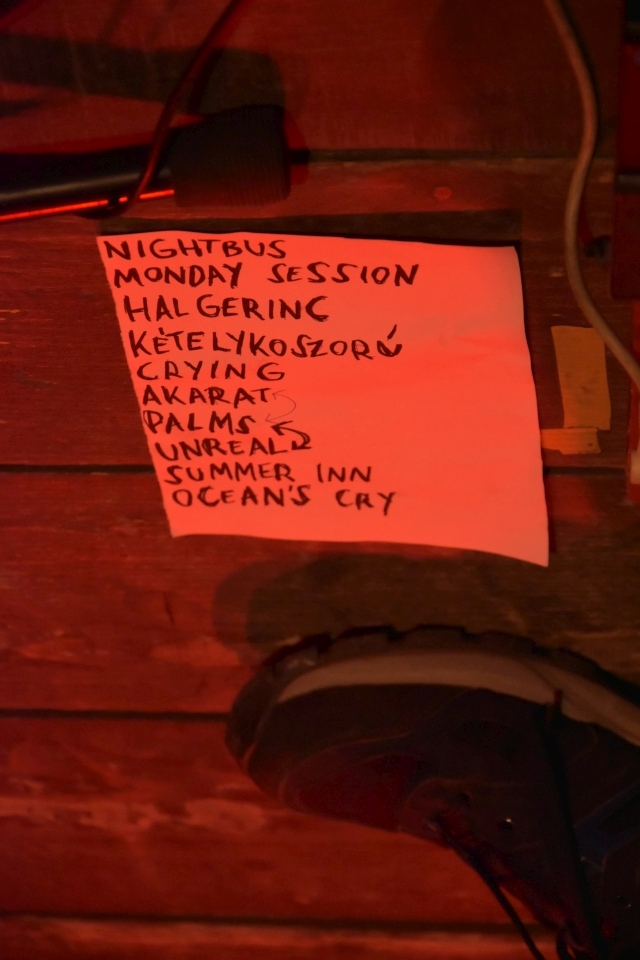 NIGHTBUS
MONDAY SESSION
HALGERINC
KÉTELYKOSZORÚ
CRYING
AKARAT
PALMS
UNREAL
SUMMER INN
OCEAN'S CRY